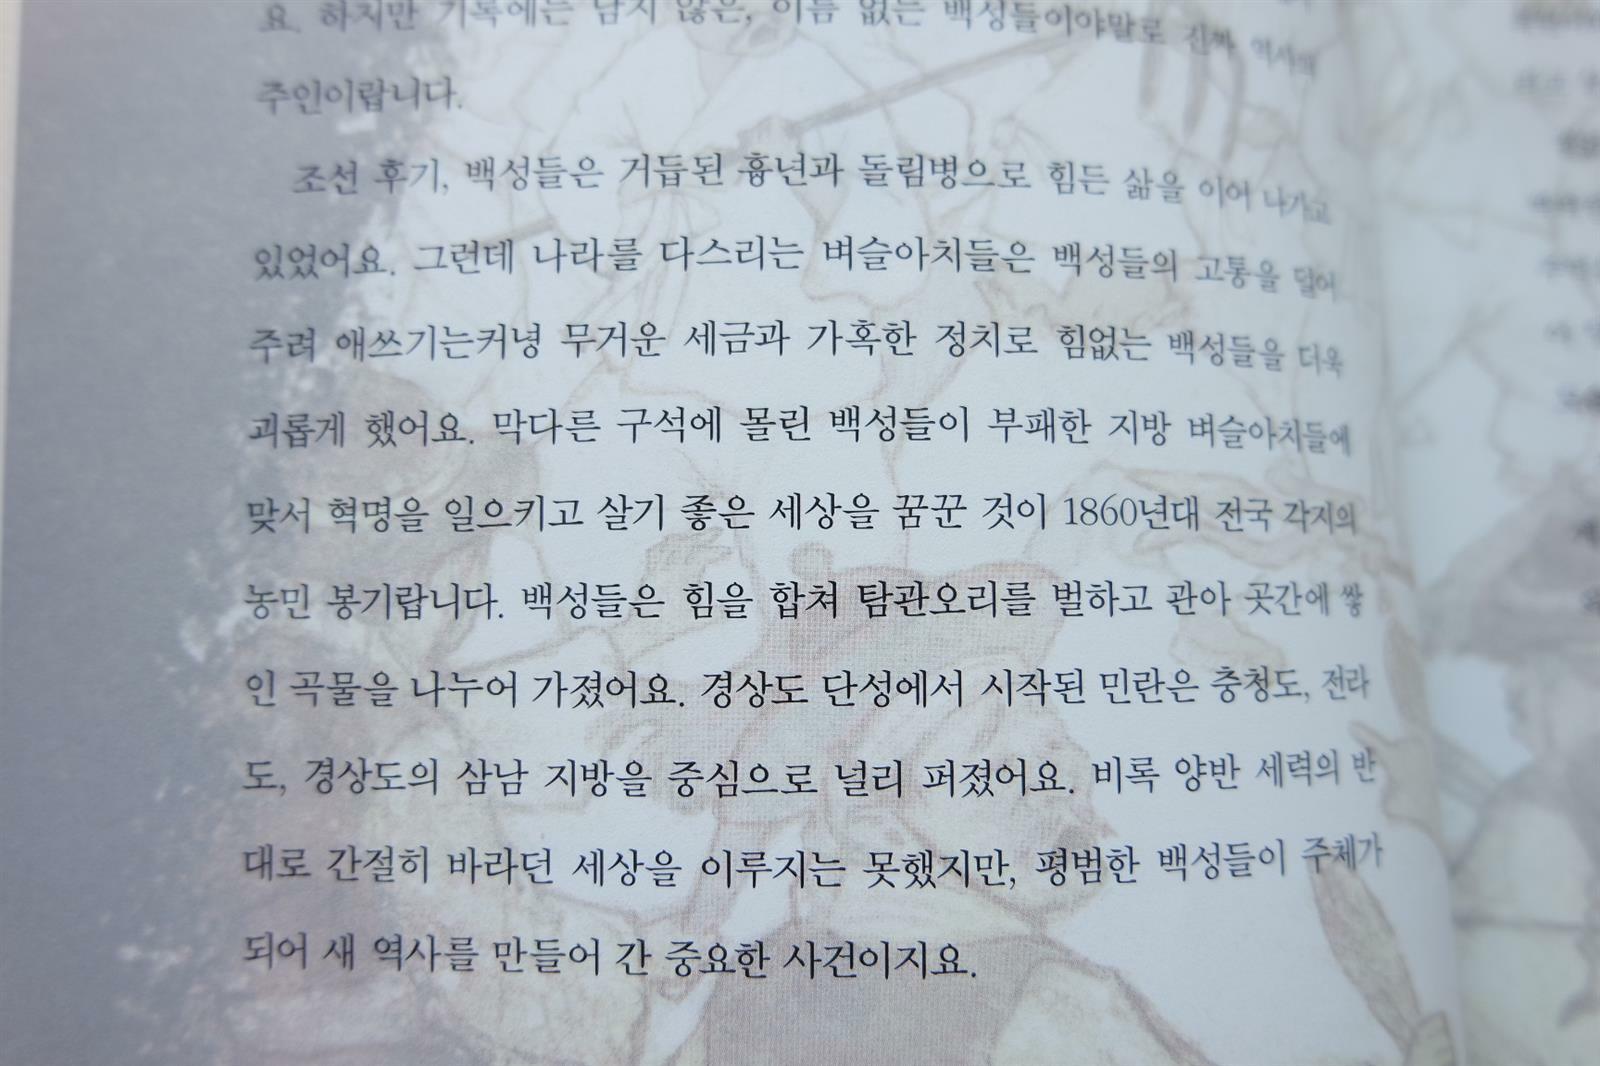 요. 하지만 기록에는 남지 않은, 이름 없는 백성들이야말로 진짜 역사의
주인이랍니다.
조선 후기, 백성들은 거듭된 흉년과 돌림병으로 힘든 삶을 이어 나가고
있었어요. 그런데 나라를 다스리는 벼슬아치들은 백성들의 고통을 덜어
주려 애쓰기는커녕 무거운 세금과 가혹한 정치로 힘없는 백성들을 더욱
괴롭게 했어요. 막다른 구석에 몰린 백성들이 부패한 지방 벼슬아치들에
맞서 혁명을 일으키고 살기 좋은 세상을 꿈꾼 것이 1860년대 전국 각지의
농민 봉기랍니다. 백성들은 힘을 합쳐 탐관오리를 벌하고 관아 곳간에 쌓
인 곡물을 나누어 가졌어요. 경상도 단성에서 시작된 민란은 충청도, 전라
도, 경상도의 삼남 지방을 중심으로 널리 퍼졌어요. 비록 양반 세력의 반
대로 간절히 바라던 세상을 이루지는 못했지만, 평범한 백성들이 주체가
되어 새 역사를 만들어 간 중요한 사건이지요.